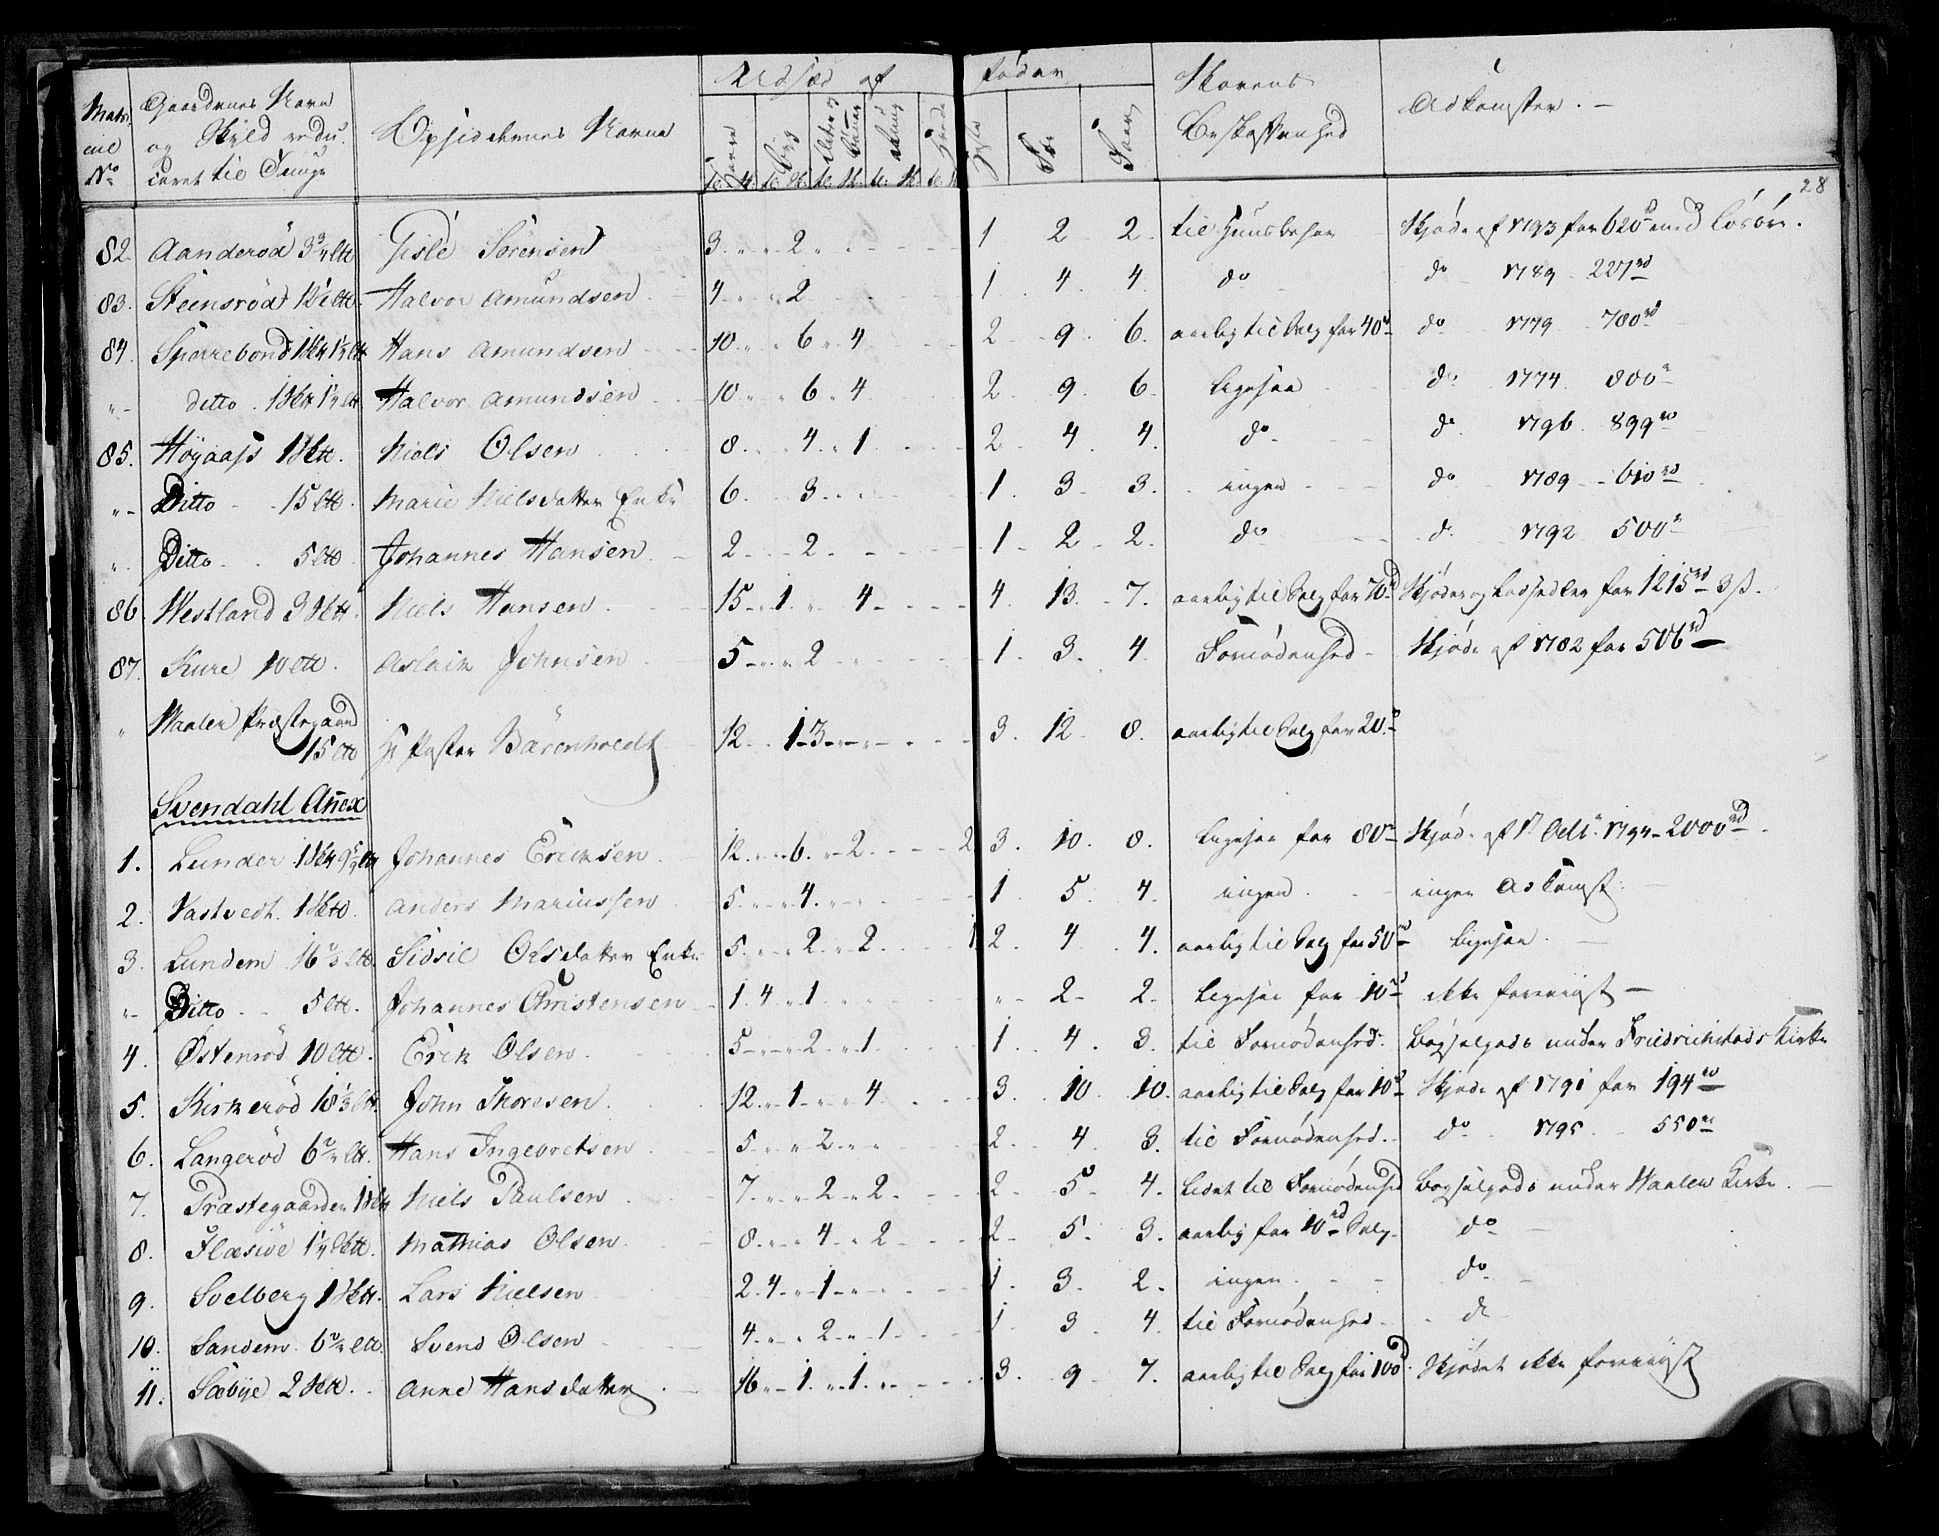 Matr. Gaardenes Navn Udsæd af føder Skovens
icul og Skyld redu- Opsiddernes Navne Beskaffenhed Adkomster. —
No ceret til Tunge Havre Byg
28
82. Aanderød 3¾ Lttt Gisle Sörensen 3 2 1 2 2 til Huusbehov Skjøde af 1793 for 620 rd med Løsøre.
83. Steensrød 12½ Ltt Halvor Amundsen 4 2 1 4 4 do do 1789 227 rd
84. Sperrebond 1 Skt 1½ Ltt Hans Amundsen 10 6 4 2 9 6 aarlig til Salg for 40 rd do 1779 700 rd
" ditto 1 Skt 1½ Ltt Halvor Amundsen 10 6 4 2 9 6 Ligesaa do 1774 800 rd
85. Høyaass 1 Sktt Niels Olsen 8 4 1 2 4 4 do do 1796 899 rd
" Ditto 15 Ltt Marie Nielsdatter Enke 6 3 1 3 3 ingen do 1789 610 rd
" Ditto 5 Ltt Johannes Hansen 2 2 1 2 2 do do 1792 500 rd
86. Westland 3 Sktt Niels Hansen 15 1 4 4 13 7 aarlig til Salg for 70 rd Skjøder og Lodsedler for 1215 rd 3 ß.
87. Kure 10 Ltt Aslack Johnsen 5 2 1 3 4 Fornødenhed Skjøde af 1782 for 506 rd
" Waaler Præstegaard
15 Ltt Hr Pastor Bärenholdt 12 1 3 3 12 8 aarlig til Salg for 20 rd
Svendahl Anex
1. Lunder 1 Skt Johannes Ericksen 12 6 2 2 3 10 8 Ligesaa for 80 rd Skjøde af 1794 2000 rd
2. Vastvedt 1 Sktt Anders Mariussen 5 4 1 5 4 ingen ingen Adkomst
3. Lundem 16⅔ Ltt Sidsil Olsdatter Enke 5 2 2 1 2 4 4 aarlig til Salg for 50 rd Ligesaa
" Ditto 5 Ltt Johannes Christensen 1 4 1 " 2 2 Ligesaa for 10 rd ikke foreviist —
4. Østenrød 10 Ltt Erik Olsen 5 2 1 1 4 3 til Fornødenhed Bøgselgods under Friedrichstads Kirke
5. Kirkerød 18⅓ Ltt John Thoresen 12 1 4 3 10 10 aarlig til Salg for 10 rd Skjøde af 1791 for 194 rd
6. Langerød Hans Ingebretsen 5 2 2 4 3 til Fornødenhed do 1795 550 rd
7. Præstegaarden 1 Skt Niels Paulsen 7 2 2 2 5 4 Lidet til Fornødenhed Bøgselgods under Waaler Kirke
8. Flæsiøe Mathias Olsen 8 4 2 2 5 3 aarlig for 10 rd Salg do
9. Solberg 1 Sktt Lars Nielsen 2 4 1 1 3 2 ingen do
10. Sandem Svend Olsen 4 2 1 1 3 4 til Fornødenhed do
11. Sæbye 2 Sktt Anne Hansdatter 16 1 1 3 9 7 aarlig til Salg for 100 rd Skjødet ikke foreviist